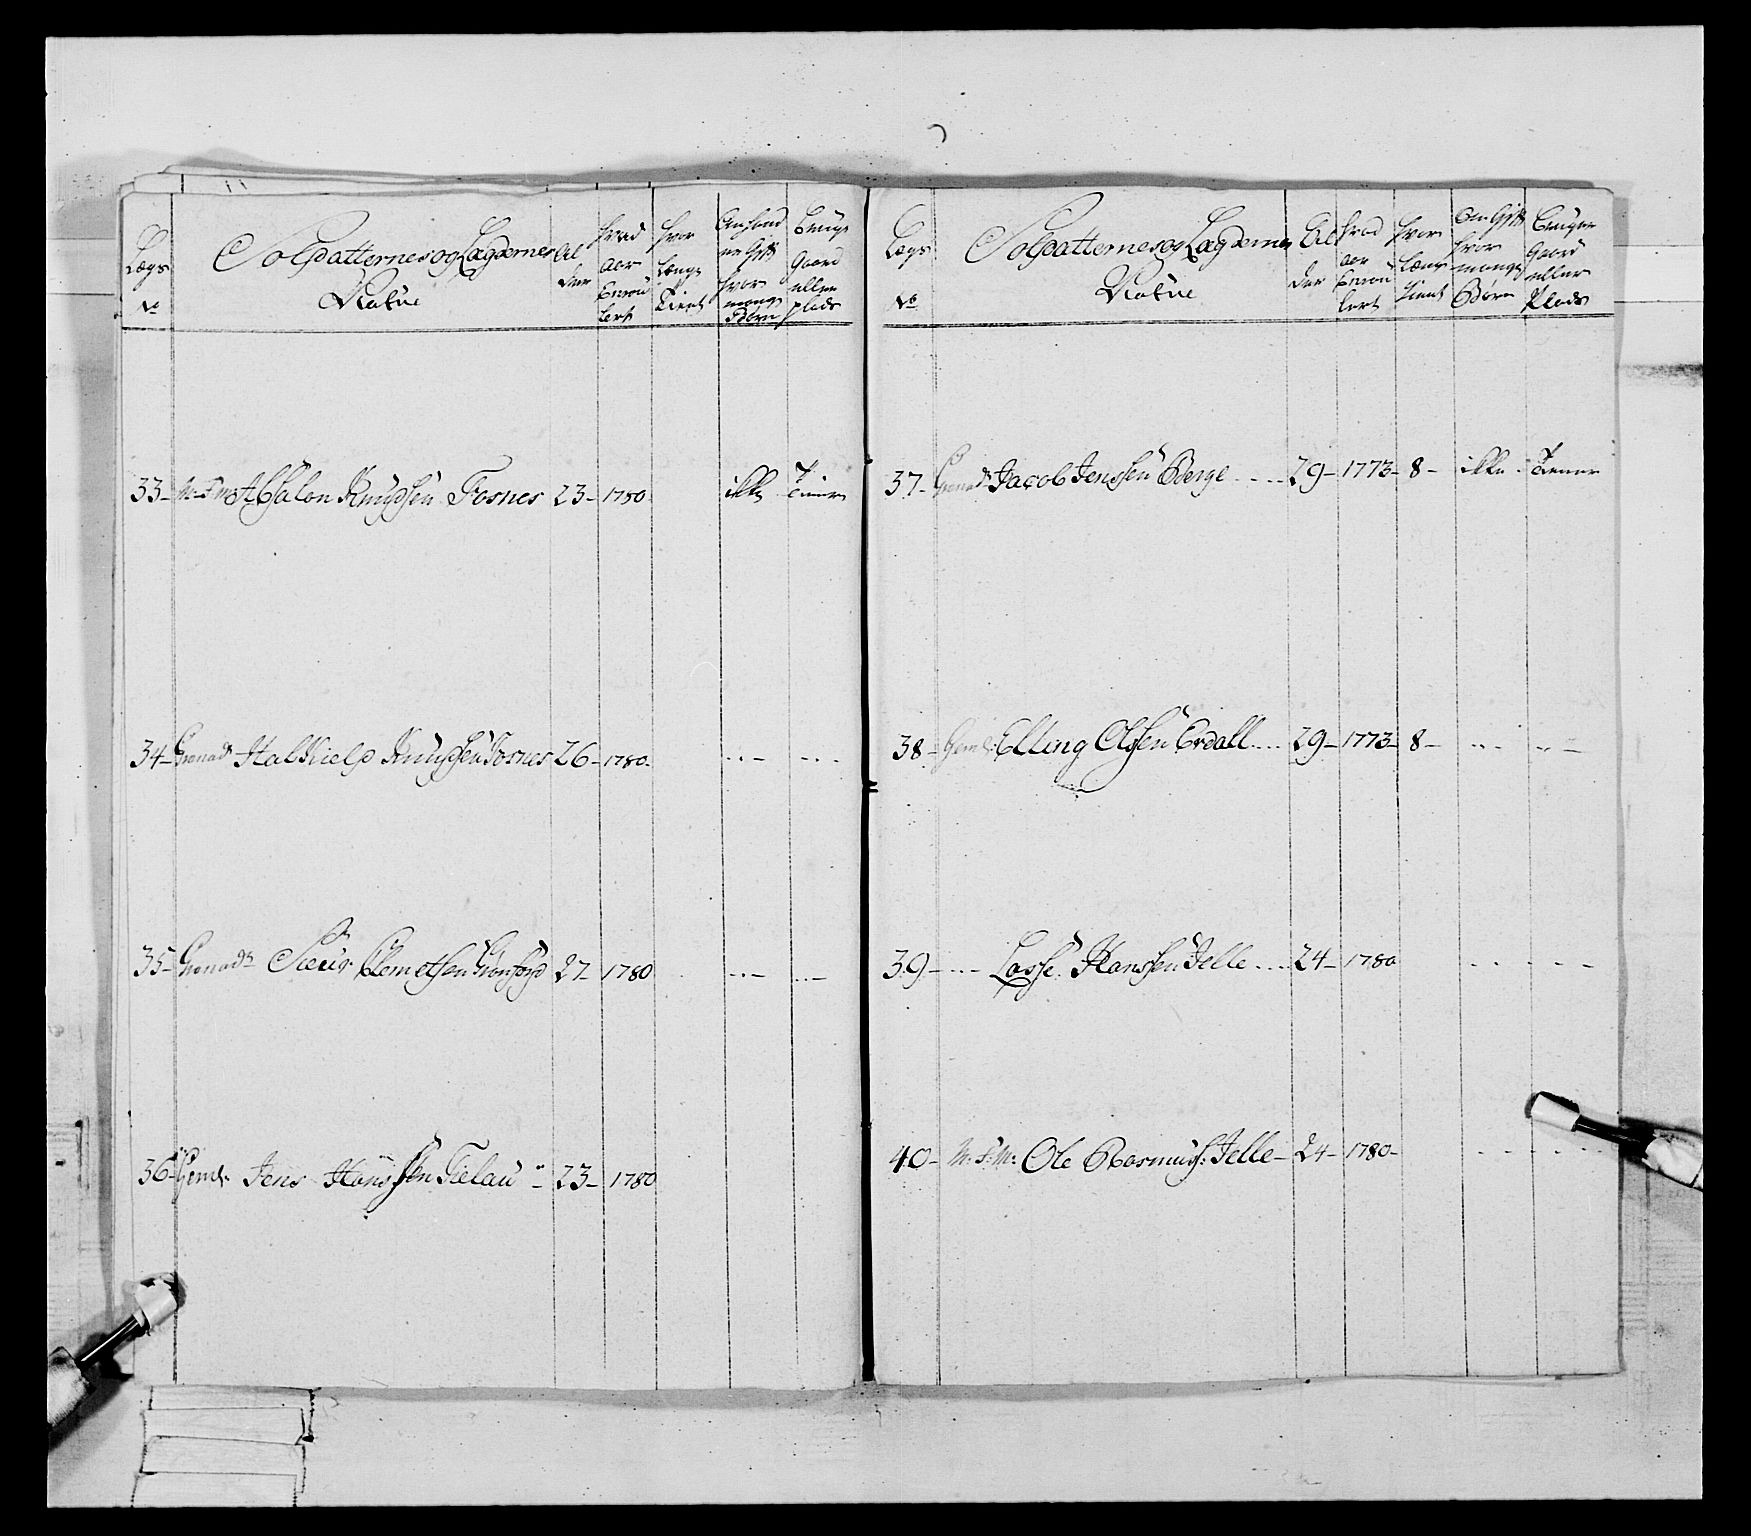 Lægs No
Soldatternes og Lægdernes Navne
Alder
hvad aar Enroulert
hvor længe Tient
om hand er Gift hvor mange Børn
bruger Gaard eller plads
33 M. Absalon Knudsen Fosnes 23 1780 ikke Tiener
34 Grenad Halkield Knudsen Fosnes 26 1780
35 Grenadr Clemetsen 27 1780
36 Geml. Jens Hanssen Tielau 23 1780
Lægs No
Soldatternes og Lægdernes Navne
Alder
hvad aar Enroulert
hvor længe Tient
om Gift hvor mange Børn
bruger Gaard eller Plads
37 Grenadr Jacob Jenssen Berge 29 1773 8 ikke Tiener
38 Geml. Elling Olssen Erdall 29 1773 8
39 Lasse Hanssen Jelle 24 1780
40 M. F. M. Ole Rasmus: Jelle 24 1780